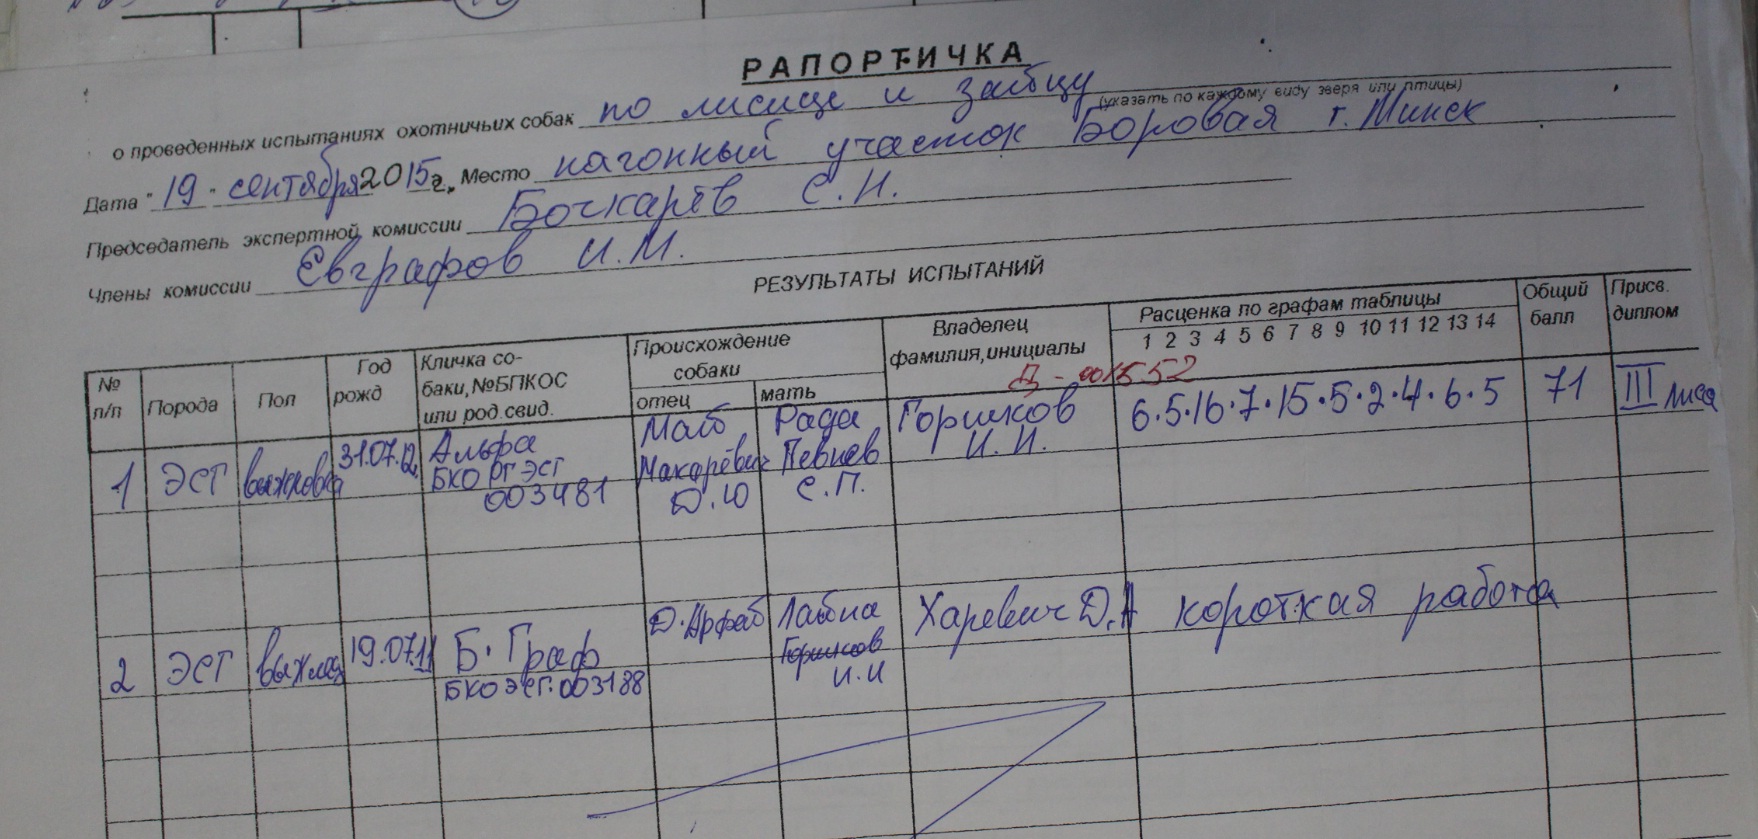 РАПОРТИЧКА
о проведенных испытаниях охотничьих собак по лисице и зайцу
(указать по каждому виду зверя или птицы)
Дата "19" сентября 2015г. Место нагонный участок Боровая г. Минск
Председатель экспертной комиссии Бочкарёв С.Н.
Члены комиссии Евграфов И.М.
РЕЗУЛЬТАТЫ ИСПЫТАНИЙ
№ п/п Порода Пол Год рожд Кличка собаки, №БПКОС или род.свид. Происхождение собаки отец мать Владелец фамилия, инициалы Расценка по графам таблицы 1 2 3 4 5 6 7 8 9 10 11 12 13 14 Общий балл Присв. диплом
Д-001552
1 ЭСГ выжловка 31.07.12 Альфа Рада Горшков 6·5·16·7·15·5·2·4·6·5 71 III лиса
БКО РГ ЭСГ Макаревич Певнев И.И.
003481 Д.Ю С.П.
2 ЭСГ выжлец 19.07.11 Б. Граф Харевич Д.А короткая работа
БКО ЭСГ.003188 Горшков
И.И